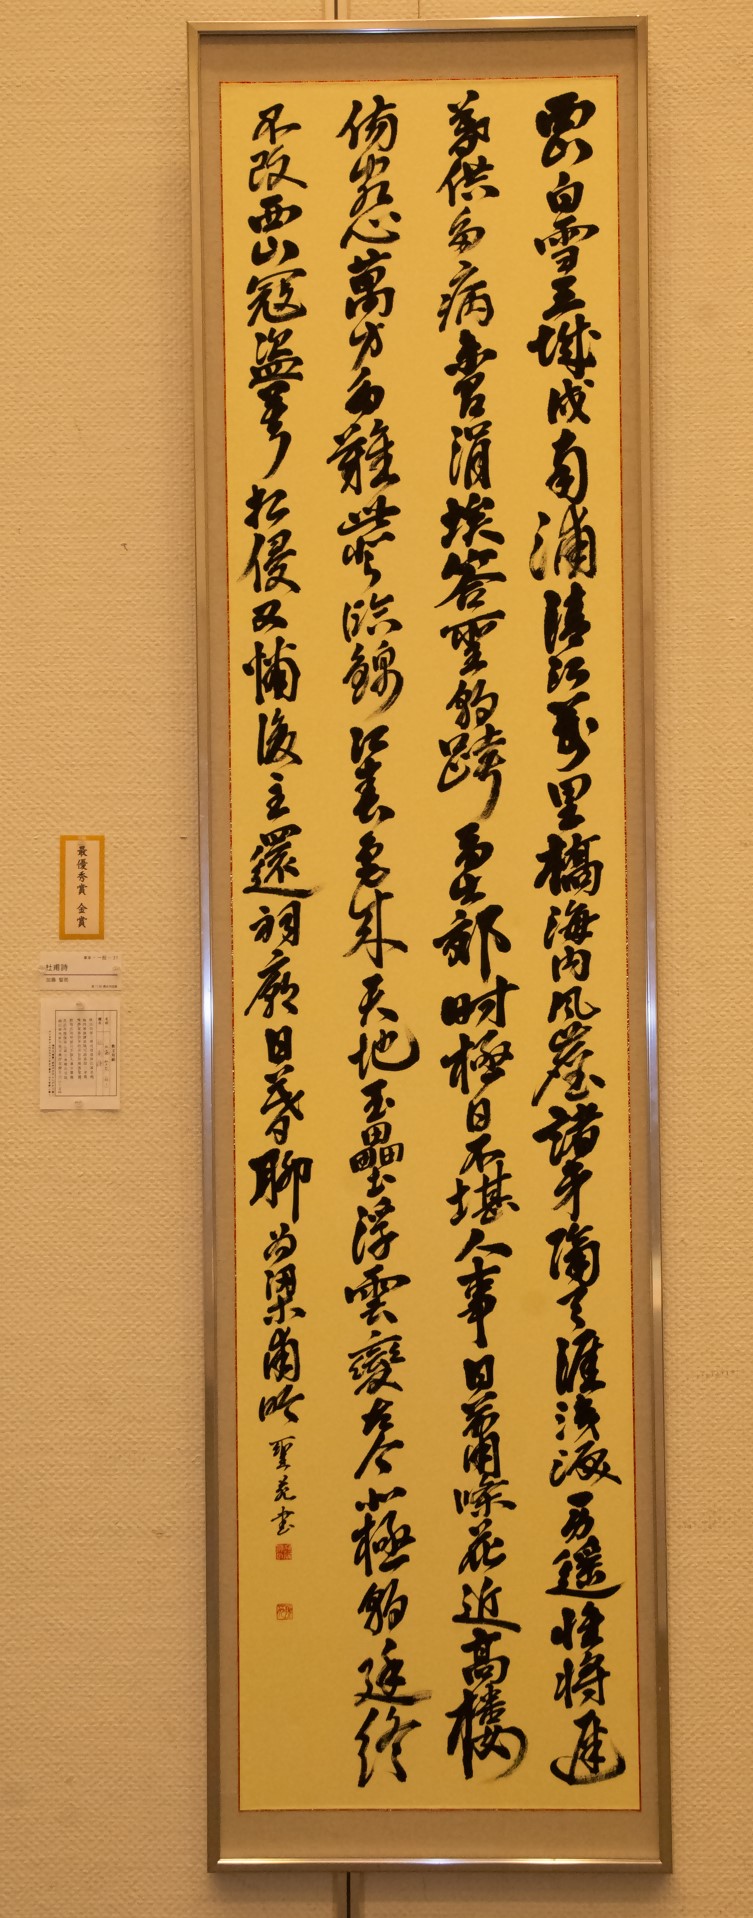 西山白雪三城戍南浦清江万里橋海内風塵諸弟隔天涯涕涙一身遥惟将遅
暮供多病未有涓埃答聖朝跨馬出郊時極目不堪人事日蕭條花近高樓
傷客心萬方多難此登臨錦江春色来天地玉壘浮雲變古今北極朝廷終
不改西山寇盗莫相侵可憐後主還祠廟日暮聊為梁甫吟 聖苑書
最優秀賞 金賞
杜甫詩